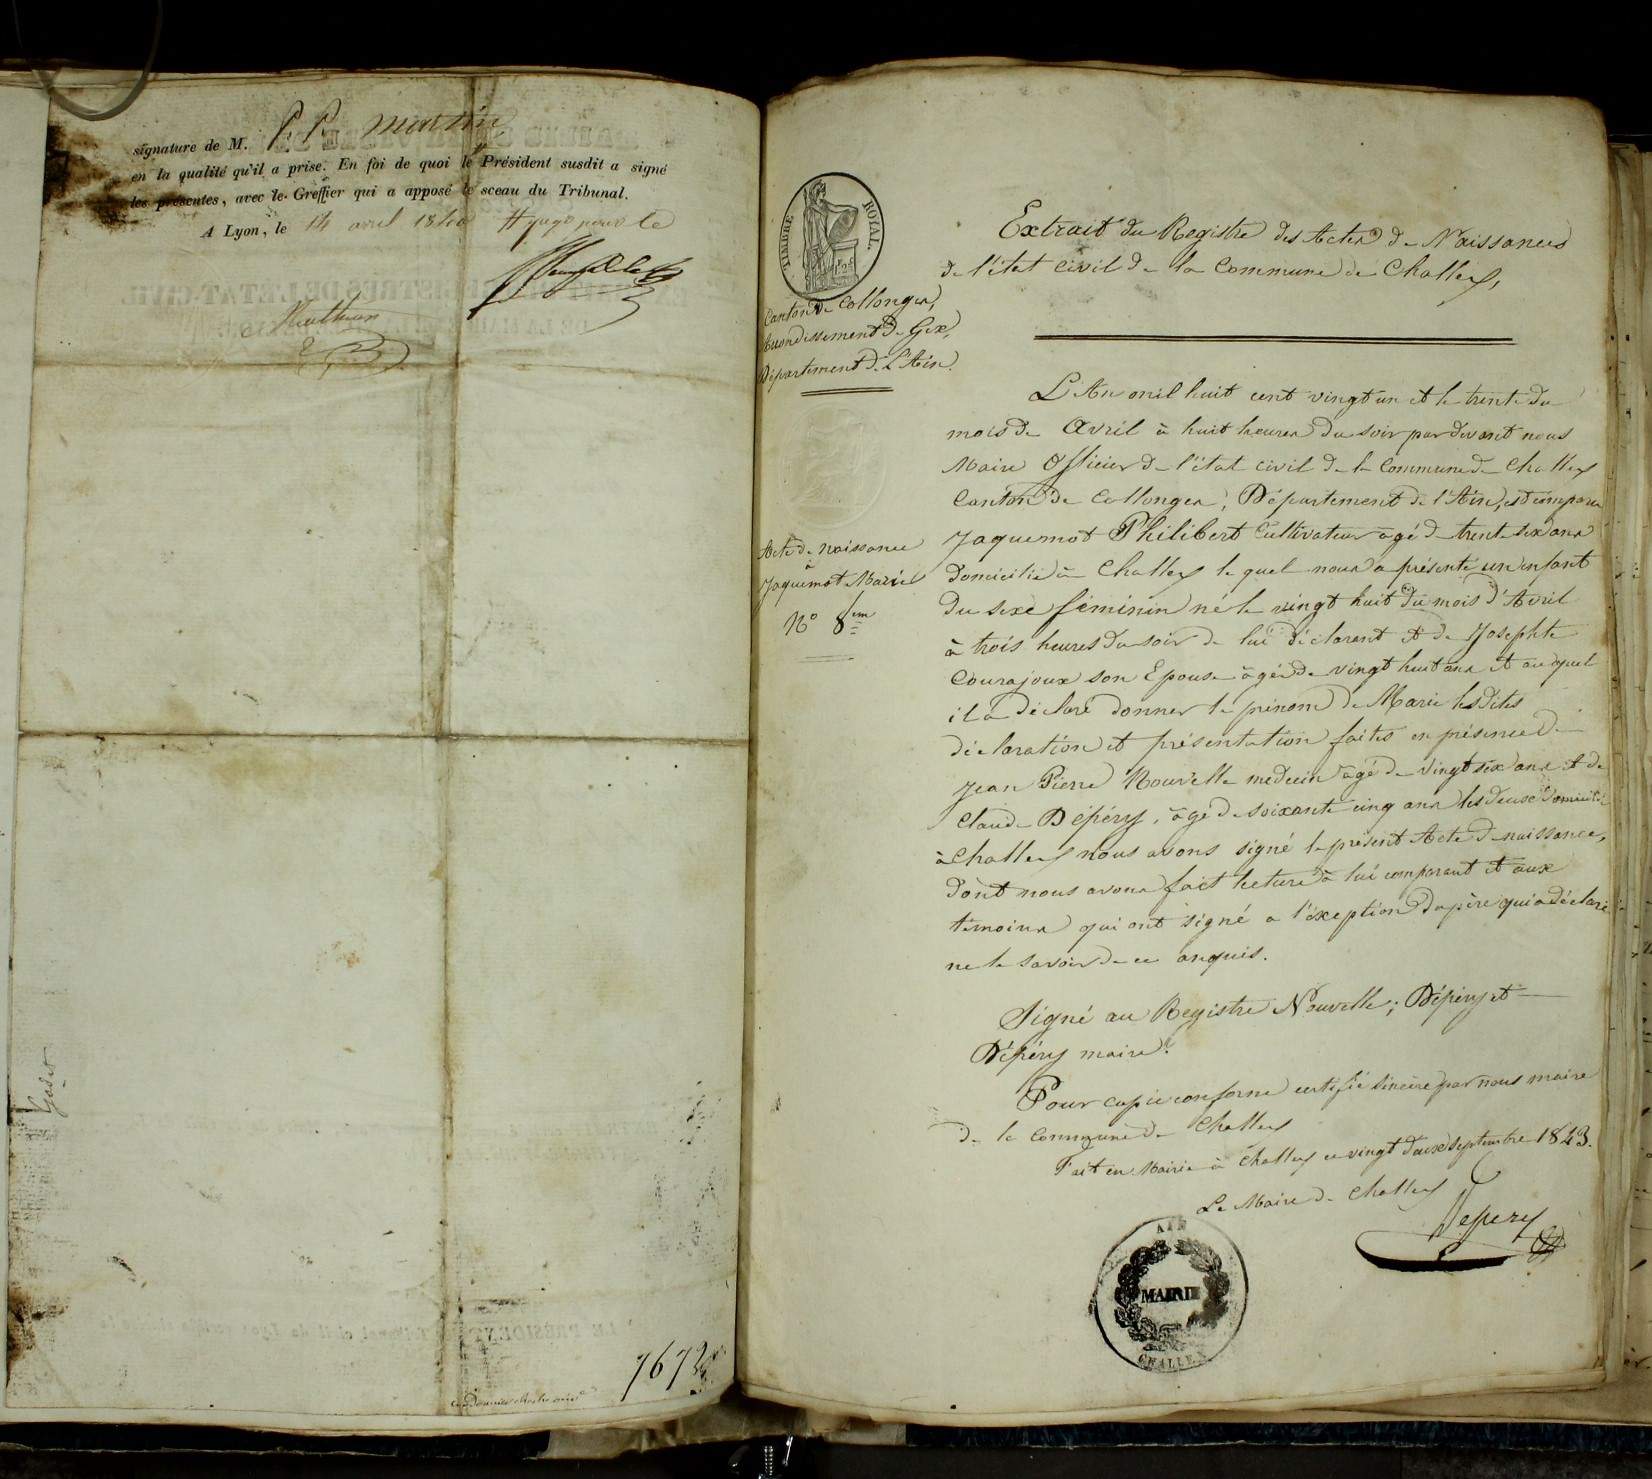 signature de M. P. P. Martin
en la qualité qu'il a prise. En foi de quoi le Président susdit a signé
les présentes, avec le Greffier qui a apposé le sceau du Tribunal.
A Lyon, le 14 avril 1840
Godet
7672
TIMBRE ROYAL.
Canton de Collonges,
Arrondissement de Gex,
Département de L'Ain.
Acte de naissance
à
Jaquemot Marie
N° 8em
Extrait du Registre des Actes de Naissances
de l'état civil de la Commune de Challex,
L'An mil huit cent vingt un et le trente du
mois de Avril à huit heures du soir par devant nous
Maire Officier de l'état civil de la Commune de Challex
Canton de Collonges, Département de l'Ain, est comparu
Jaquemot Philibert Cultivateur âgé de trente six ans
domicilié à Challex le quel nous a présenté un enfant
du sexe féminin né le vingt huit du mois d'Avril
à trois heures du soir de lui déclarant et de Josephte
Courajoux son Epouse âgée de vingt huit ans et au quel
il a déclaré donner le prénom de Marie lesdites
déclaration et présentation faites en présence de
Jean Pierre Nouvelle medecin âgé de vingt six ans et de
Claude Dépéry, âgé de soixante cinq ans les deux domiciliés
à Challex nous avons signé le présent Acte de naissance,
dont nous avons fait lecture à lui comparant et aux
temoins qui ont signé a l'éxeption du père qui a déclaré
ne le savoir de ce enquis.
Signé au Registre Nouvelle; Dépéry et
Dépéry maire.
Pour copie conforme certifié sincère par nous maire
de la Commune de Challex
Fait en Mairie à Challex ce vingt deux septembre 1843.
Le Maire de Challex
Depery
AIN
MAIRIE
CHALLEX